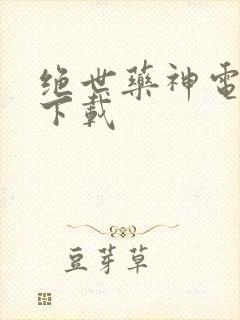 绝世藥神電
下載
豆芽草